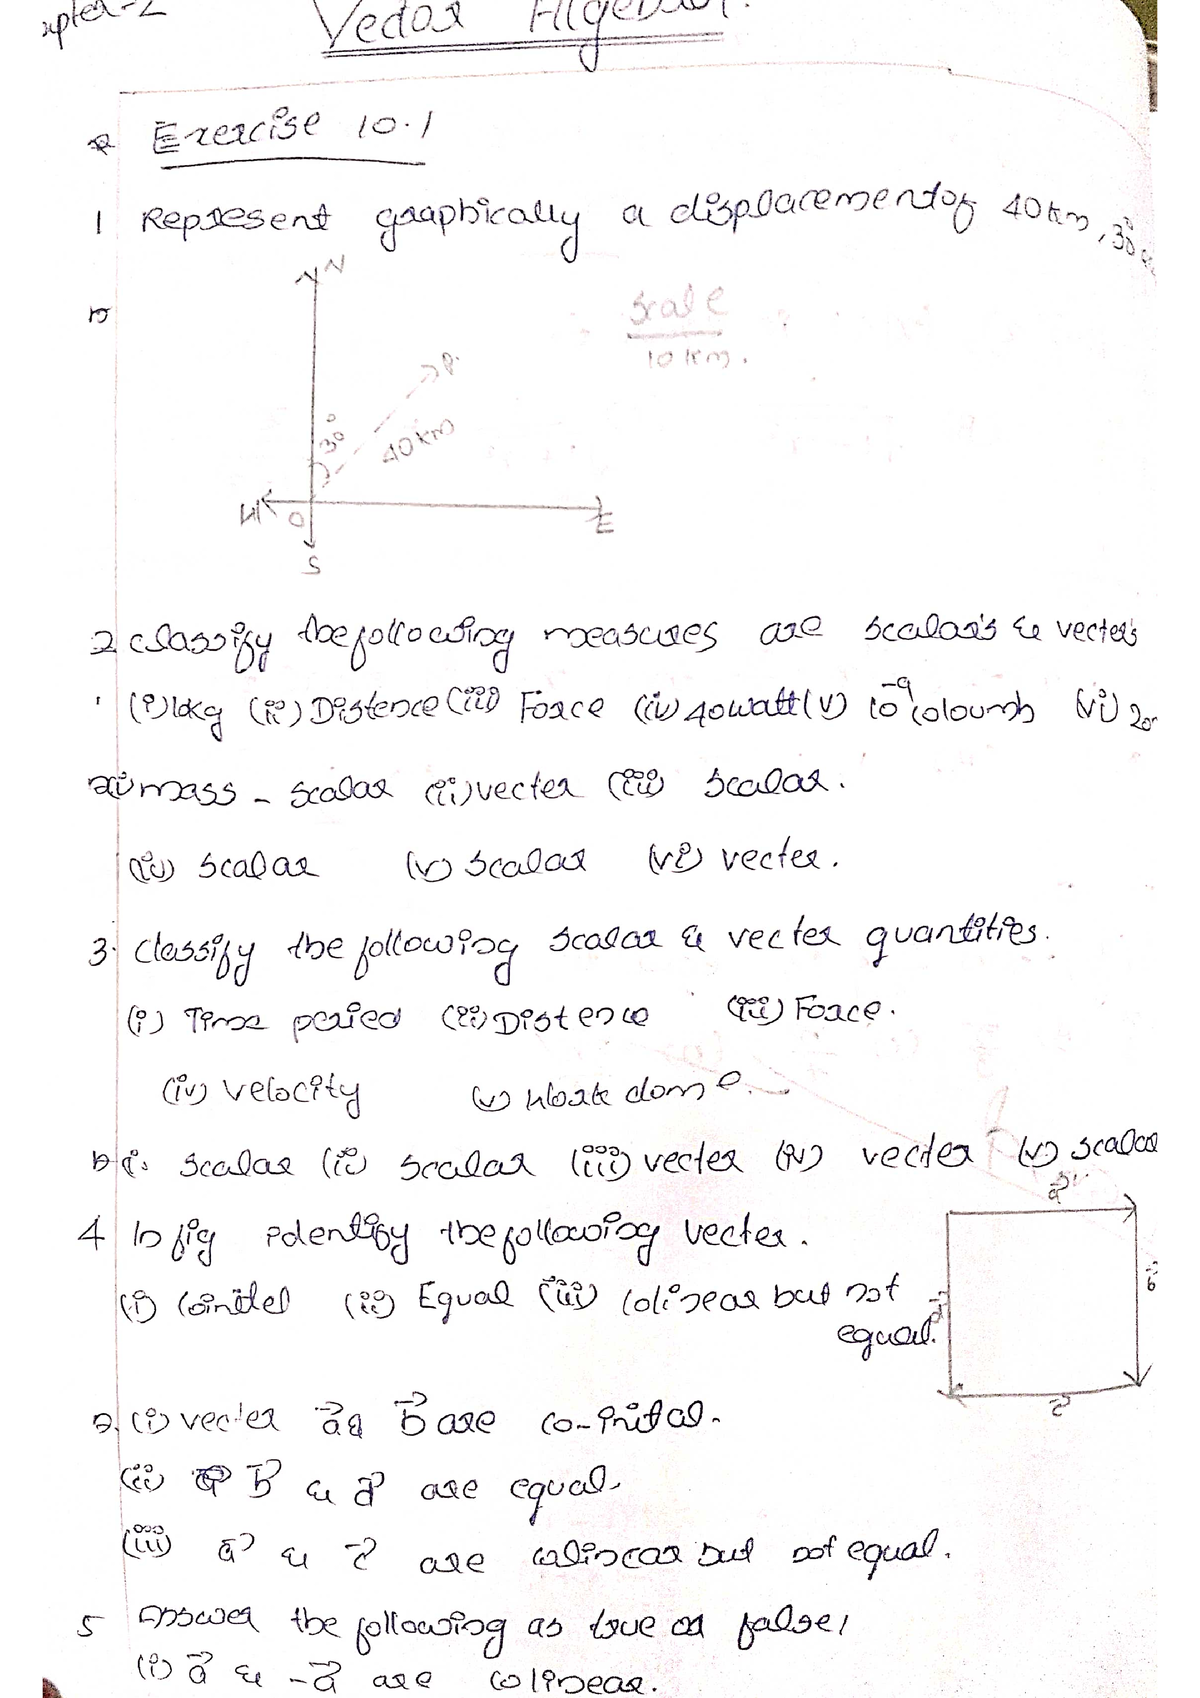 Vector Algebra.
Exercise 10.1
1 Represent graphically a displacement of 40km, 30°
N
Scale
10 km.
P.
30°
40km
W O E
S
2 classify the following measures are scalar's & vecter's
(i) 10kg (ii) Distence (iii) Force (iv) 40 watt (v) 10⁻⁹ coloumb (vi) 20
mass - scalar (ii) vecter (iii) scalar.
(iv) scalar (v) scalar (vi) vecter.
3. classify the following scalar & vecter quantities.
(i) Time peried (ii) Distence (iii) Force.
(iv) velocity (v) Work dome.
(i. scalar (ii) scalar (iii) vecter (iv) vecter (v) scalar
4 In fig identify the following vecter.
a⃗
b⃗
(i) Cointel (ii) Equal (iii) Colinear but not
equal. d⃗
c⃗
(i) vecter a⃗ & b⃗ are co-inital.
(ii) b⃗ & d⃗ are equal.
(iii) a⃗ & c⃗ are colinear but not equal.
5 Answer the following as true or false,
(i) a⃗ & -a⃗ are colinear.